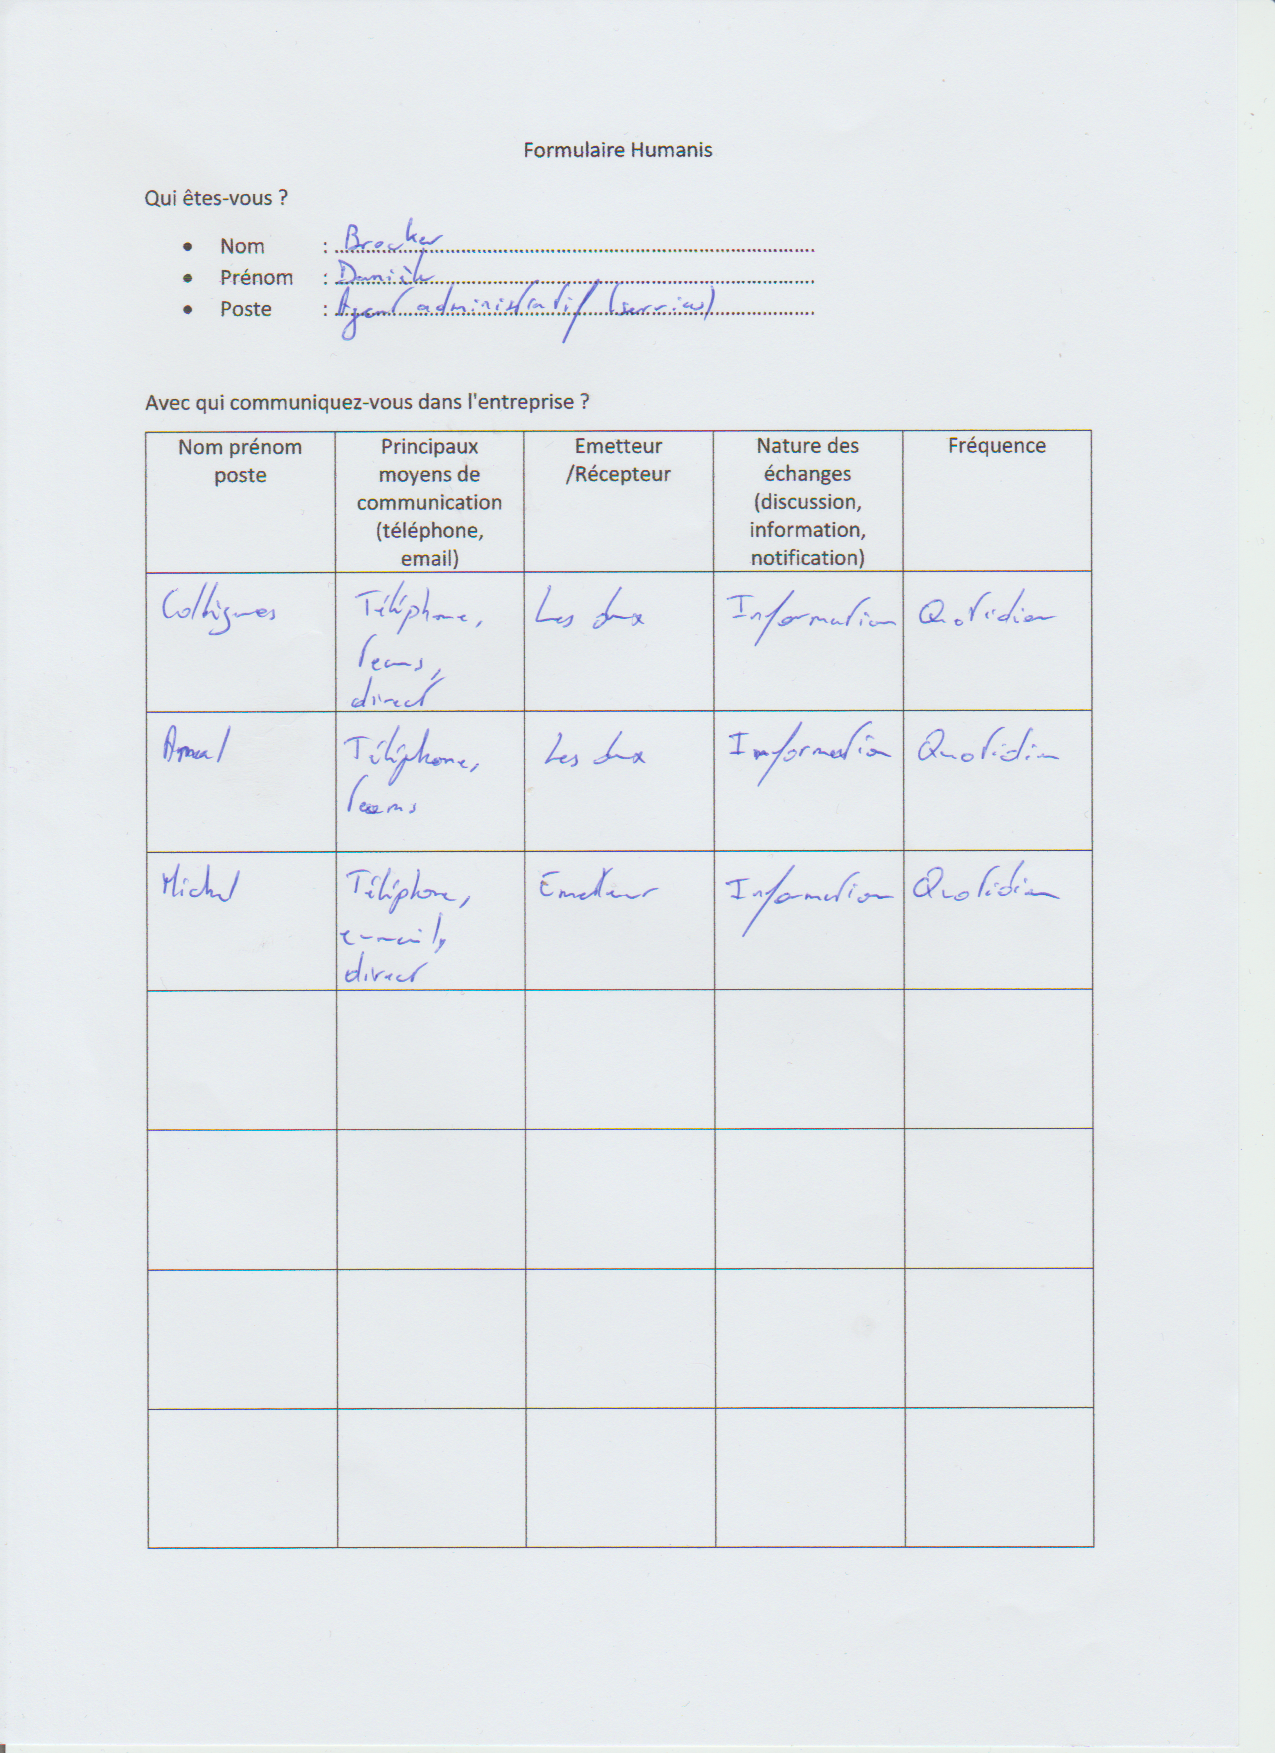 Formulaire Humanis
Qui êtes-vous ?
• Nom : Brocker
• Prénom : Danièle
• Poste : Agent administratif (services)
Avec qui communiquez-vous dans l'entreprise ?
Nom prénom
poste
Principaux
moyens de
communication
(téléphone,
email)
Emetteur
/Récepteur
Nature des
échanges
(discussion,
information,
notification)
Fréquence
Collègues
Téléphone,
Teams,
direct
Les deux
Information
Quotidien
Téléphone,
Teams
Les deux
Information
Quotidien
Michel
Téléphone,
e-mail,
direct
Emetteur
Information
Quotidien